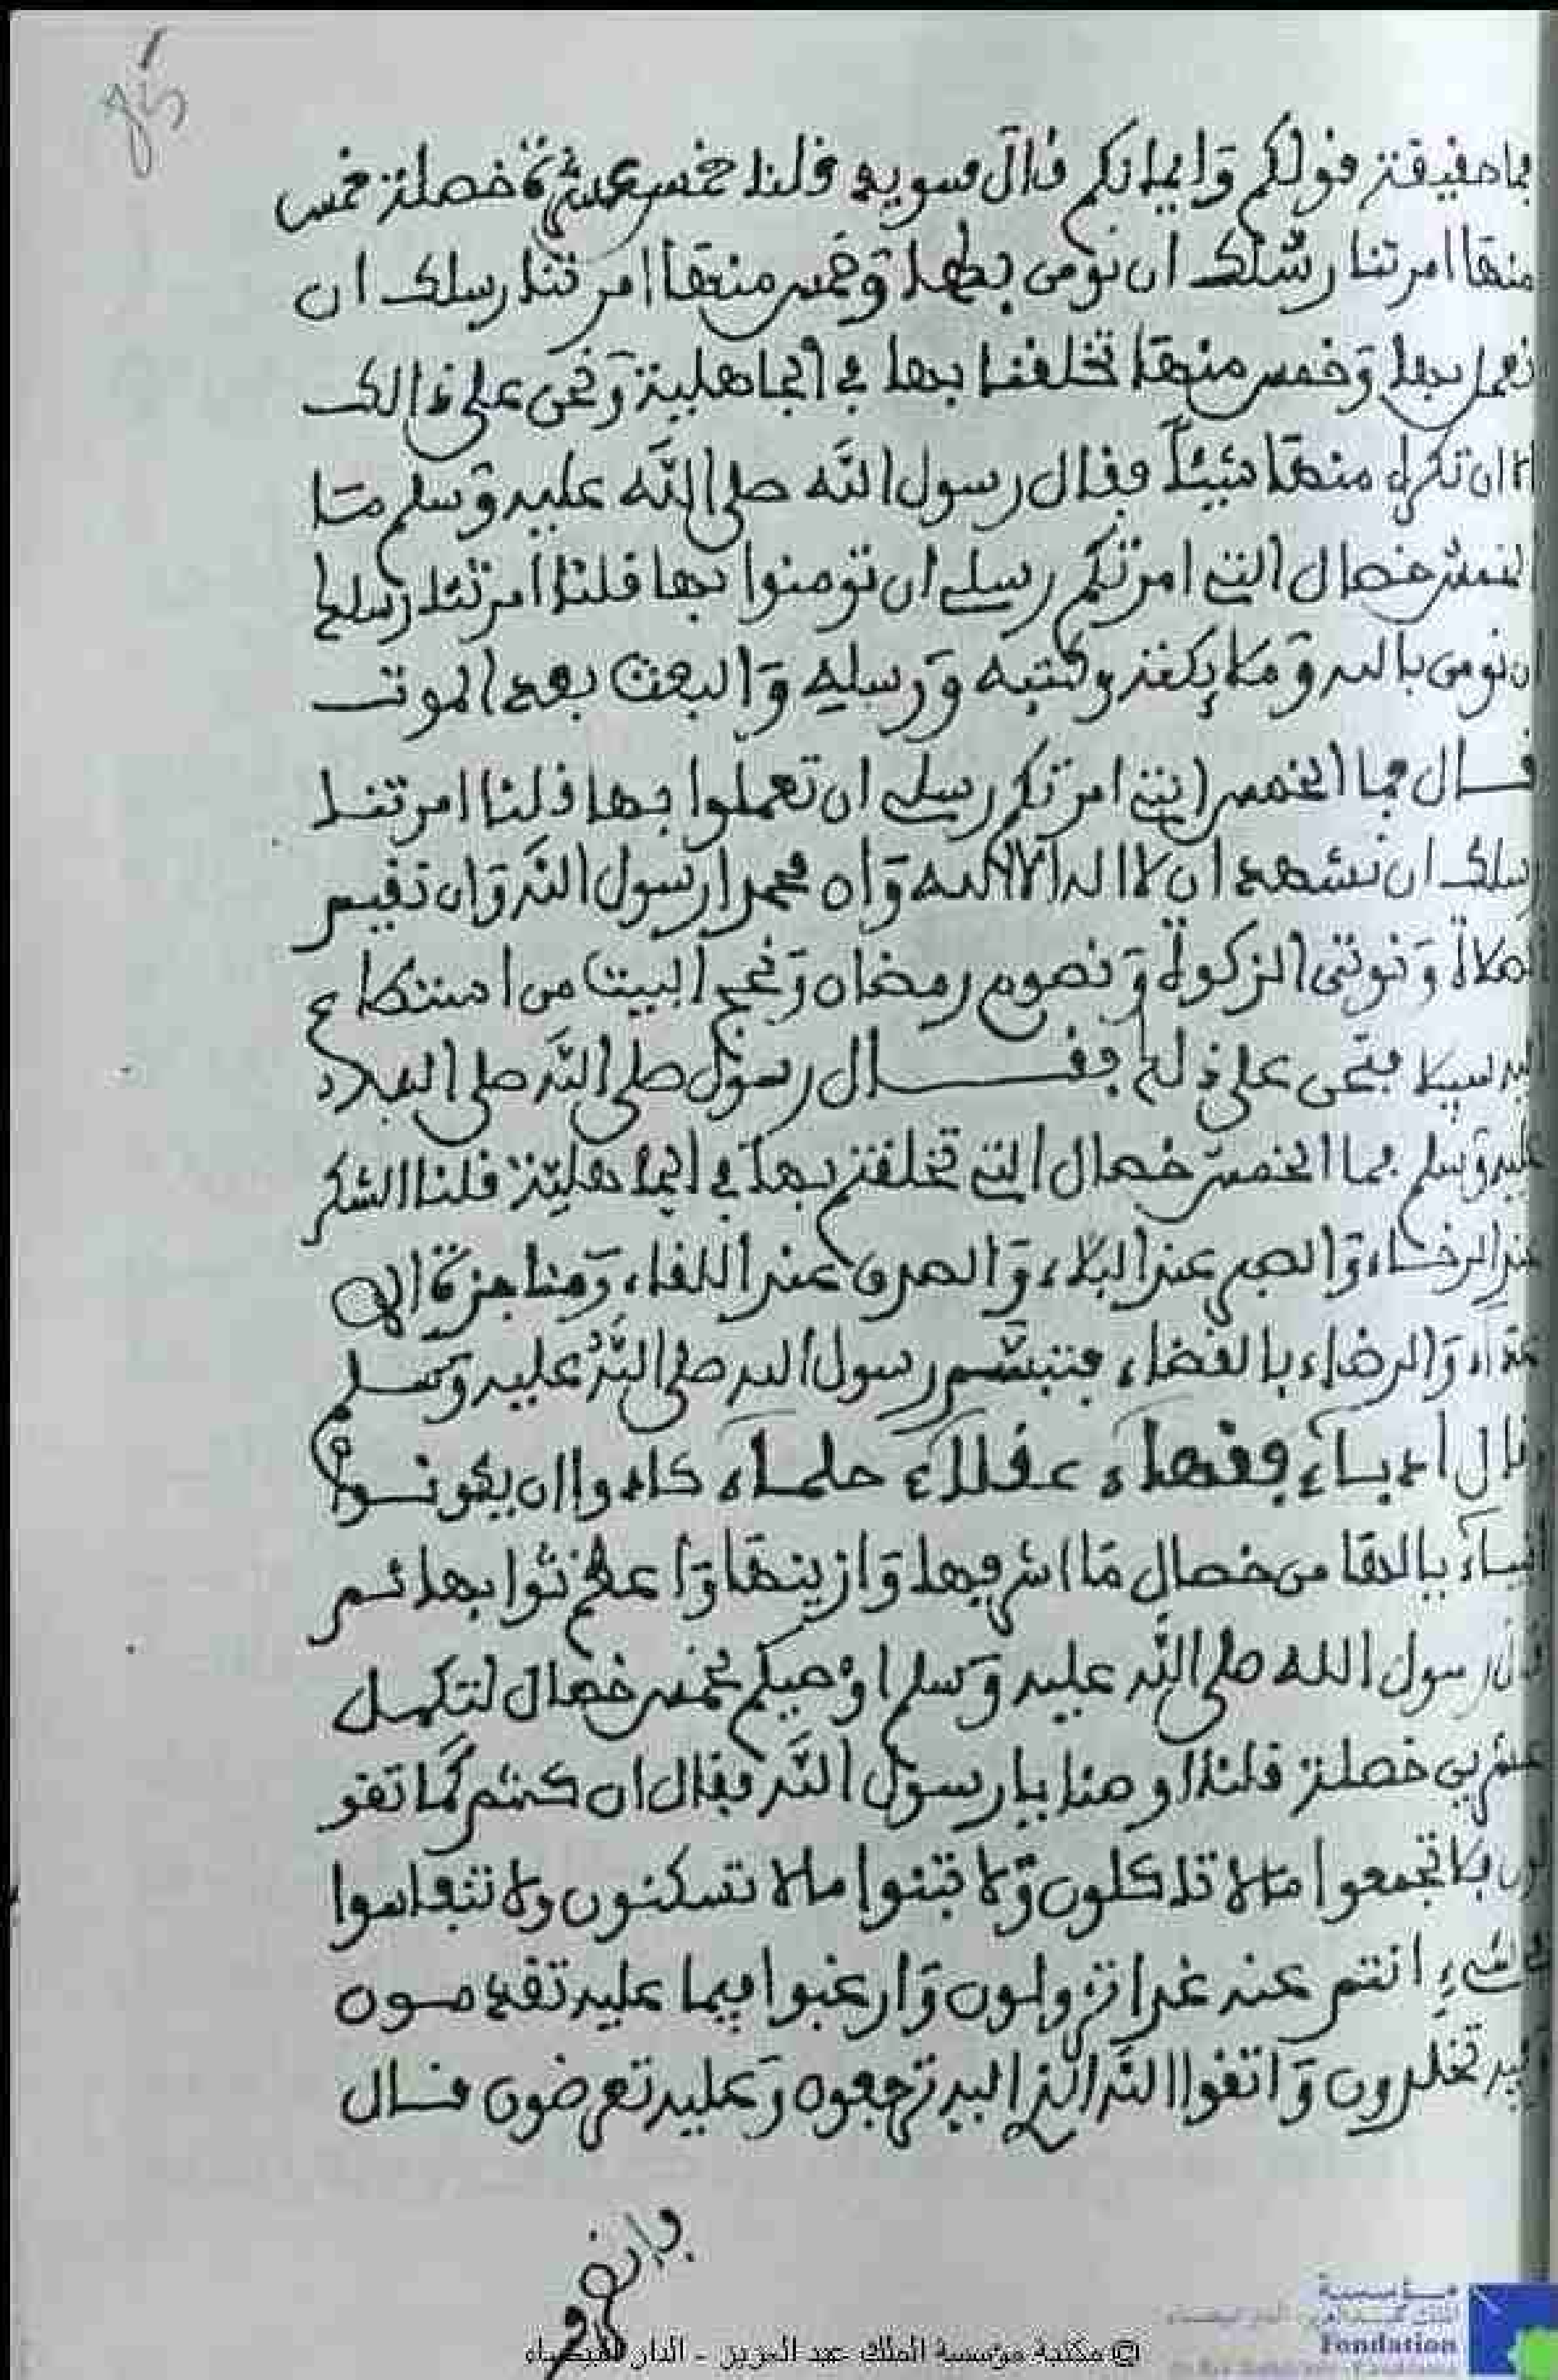 فما حقيقة قولكم وَايمانكم قال سويد قلنا خمس عشرة خصلة خمس
منها امرتنا رسلك ان نومن بها وَخمس منها امرتنا رسلك ان
نعمل بها وَخمس منها تخلقنا بها في الجاهلية وَنحن على ذالك
الا ان تكره منها شيئا فقال رسول الله صلى الله عليه وَسلم مَا
الخمس خصال التي امرتكم رسلي ان تومنوا بها قلنا امرتنا رسلك
ان نومن بالله وَملائكته وكتبه وَرسله وَالبعث بعد الموت
قال فما الخمس التي امرتكم رسلي ان تعملوا بها قلنا امرتنا
رسلك ان نشهد ان لا اله الا الله وَان محمدا رسول الله وَان نقيم
الصلاة وَنوتي الزكوة وَنصوم رمضان وَنحج البيت من استطاع
اليه سبيلا فنحن على ذلك فقال رسول صلى الله صلى
عليه وَسلم فما الخمس خصال التي تخلقتم بها في الجاهلية قلنا الشكر
عند الرخاء وَالصبر عند البلاء وَالصدق عند اللقاء وَمناجزة
الاعداء وَالرضاء بالقضاء فتبسم رسول الله صلى الله عليه وَسلم
وقال ادباء فقهاء عقلاء حلماء كادوا ان يكونوا
انبياء يالها من خصال مَا اشرفها وَازينها وَاعظم ثوابها ثم
قال رسول الله صلى الله عليه وَسلم اوصيكم بخمس خصال لتكمل
عشرين خصلة قلنا اوصنا يا رسول الله فقال ان كنتم كما تقو
لون فلا تجمعوا مالا تاكلون وَلا تبنوا مالا تسكنون ولا تنافسوا
في شيء انتم عنه غدا تزولون وَارغبوا فيما عليه تقدمون
وفيه تخلدون وَاتقوا الله الذي اليه ترجعون وَعليه تعرضون قال
© مكتبة مؤسسة الملك عبد العزيز - الدار البيضاء
مؤسسة
Fondation